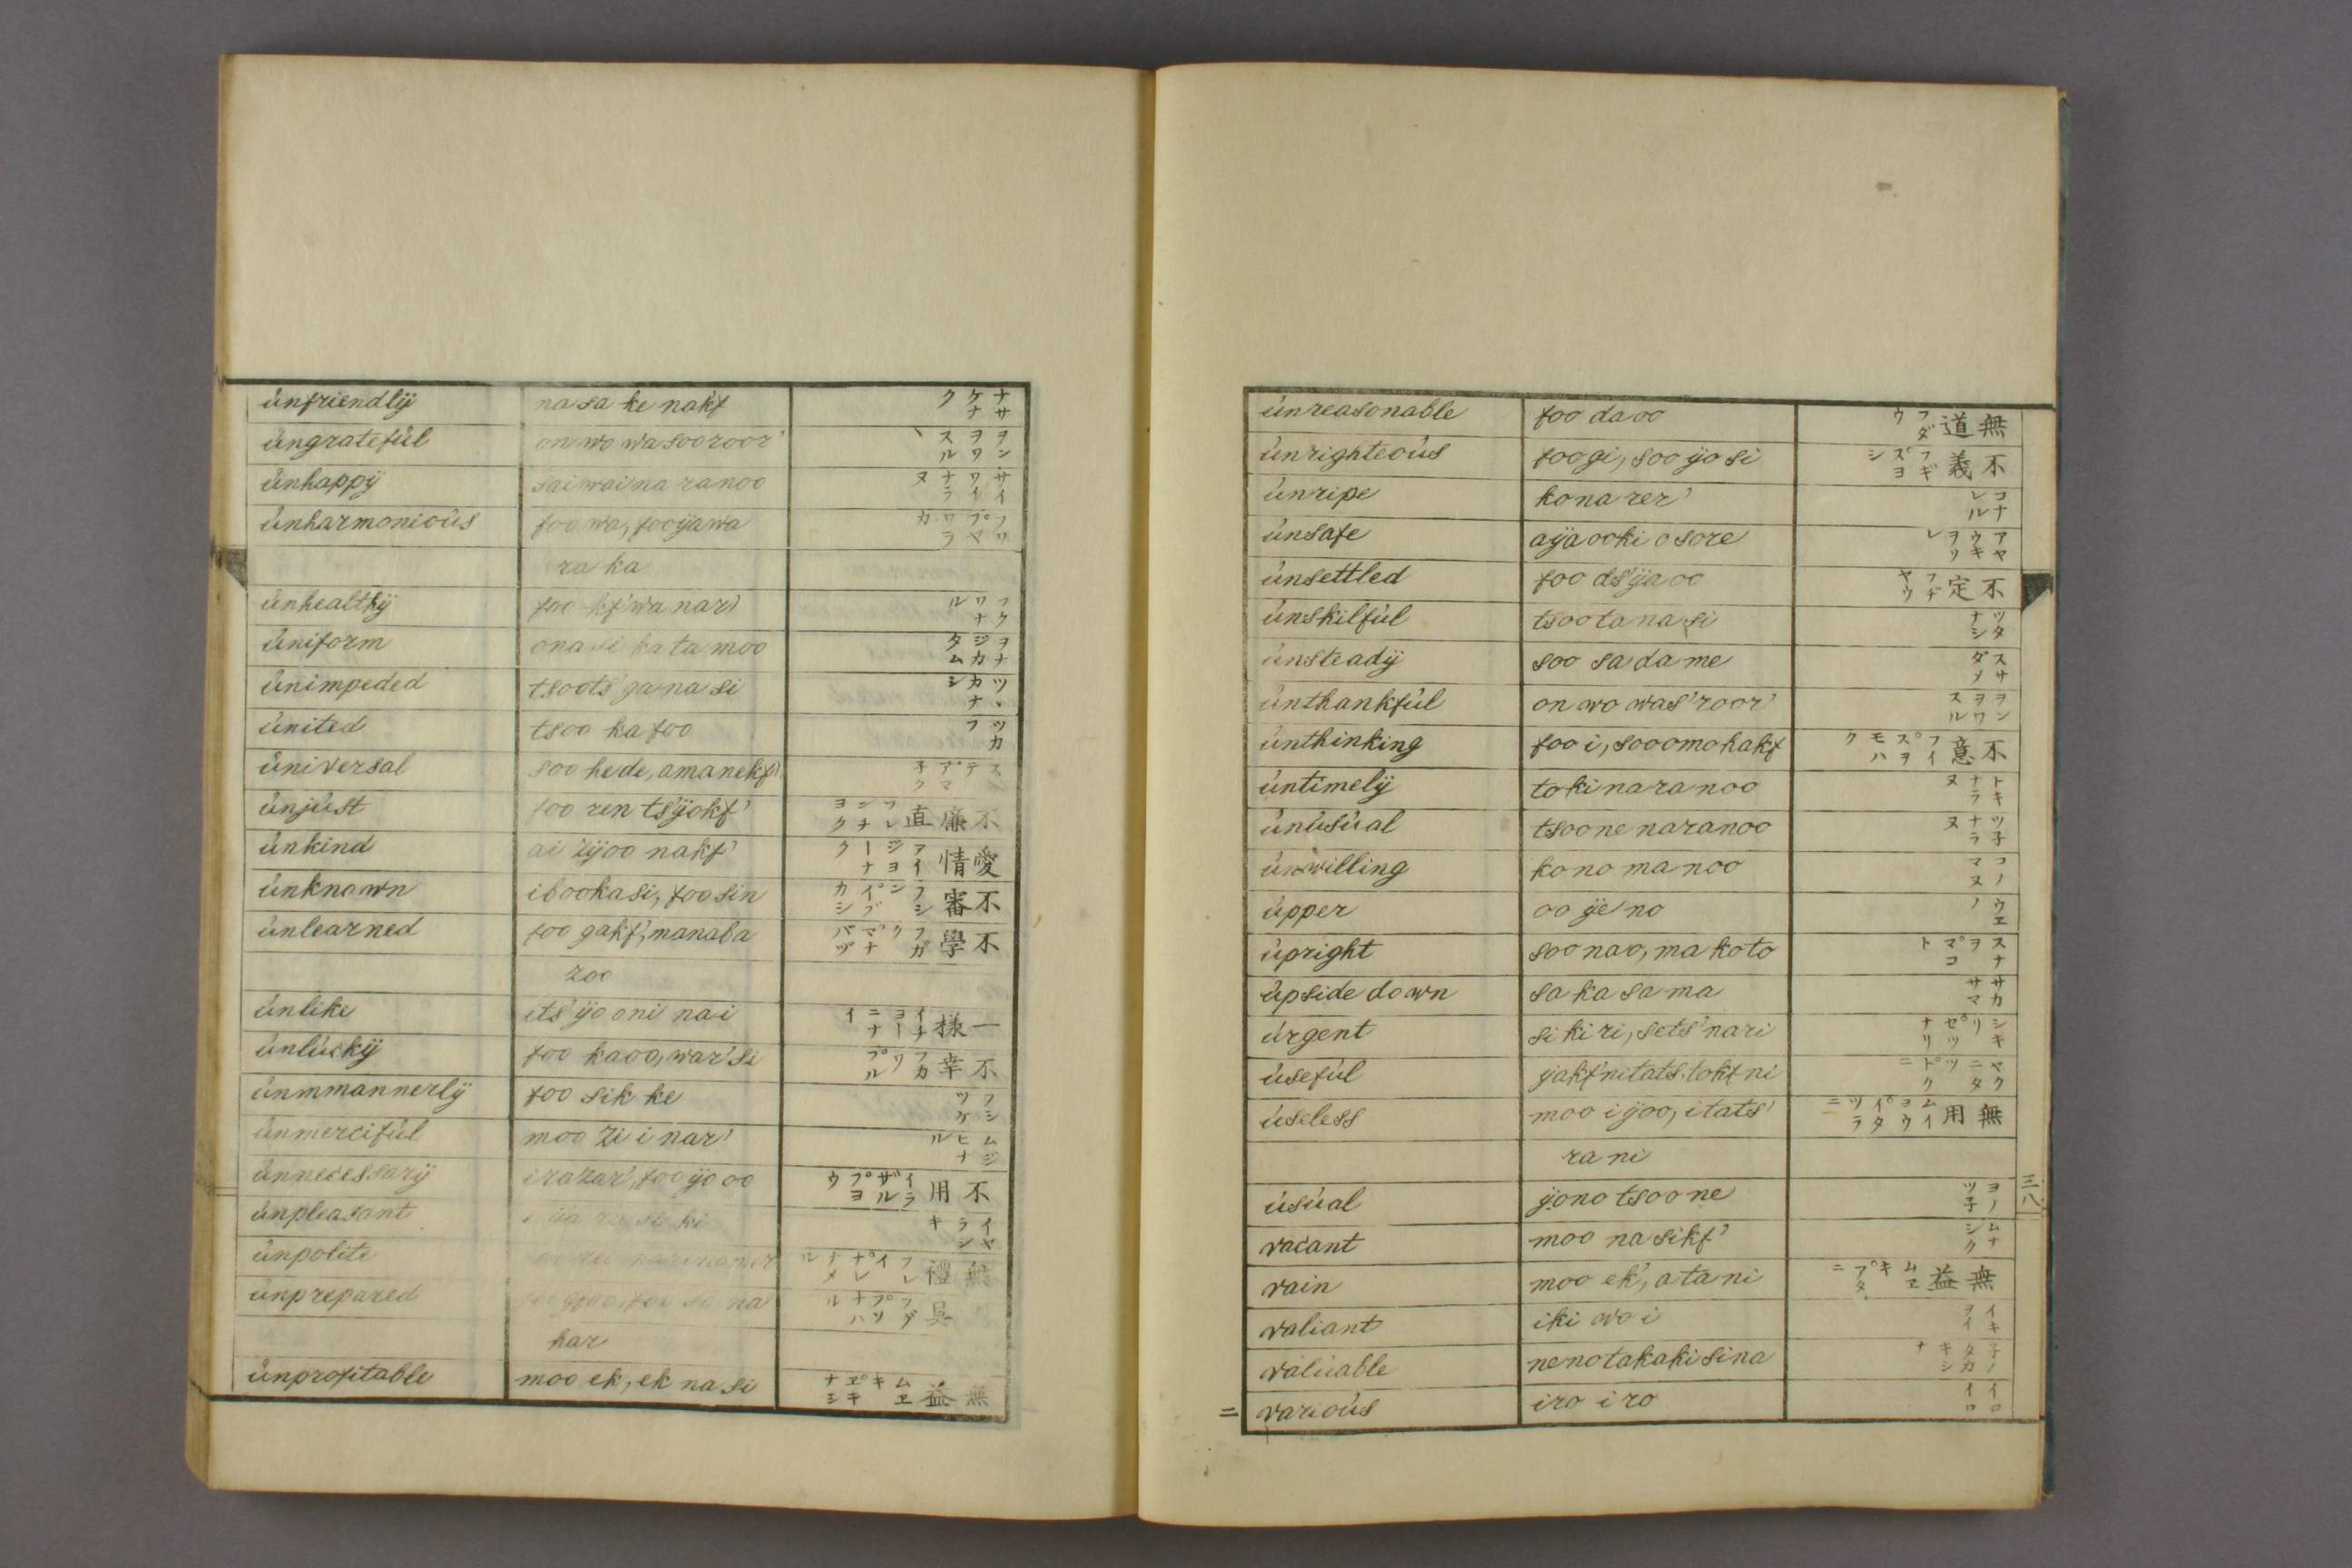 únfriendlÿ nasa ke nakf ナサケナク
úngratefúl on wo wasooroor' ヲンヲワスル丶
únhappÿ saiwai na ranoo サイワイナラヌ
únharmonioús foo wa, fooÿawa フワ フヤワラカ
ra ka
únhealthÿ foo kf'wa nar' フクワナル
úniform onasi ka ta moo ヲナジカタム
únimpeded tsoots'ga na si ツ丶カナシ
únited tsoo ka foo ツカフ
úniversal soo hede, amanekf'
únjúst foo ren ts'ÿokf' 不廉直
únkind ai zÿoo nakf' 愛情 アイジヨーナク
únknown ibookasi, foo sin 不審 フシン イブカシ
únlearned foo gakf', manaba 不學 フガク マナバヅ
zoo
únlike its'ÿo oni nai 一樣 イチヨーニナイ
únlúckÿ foo kaoo, war'si 不幸
únmmannerlÿ foo sik ke フシツケ
únmercifúl moo zi i nar' ムジヒナル
únnecessarÿ irazar', foo ÿo oo 不用 イラザル フヨウ
únpleasant i ÿa ra si ki イヤラシキ
únpolite 無禮
únprepared na 具
har
únprofitable moo ek, ek na si 無益 ムエキ エキナシ
únreasonable foo daoo 無道 フダウ
únrighteoús foogi, soo ÿo si 不義
únripe kona rer' コナレル
únsafe aÿaooki osore アヤウキヲソレ
únsettled foo ds'ÿa oo 不定 フヂヤウ
únskilfúl tsoota na si ツタナシ
únsteadÿ soo sa da me スサダメ
únthankfúl on wo was'roor' ヲンヲワスル
únthinking foo i, sooomohakf 不意 フイ スヲモハク
úntimelÿ toki nara noo トキナラヌ
únúsúal tsoone naranoo ツ子ナラヌ
únwilling kono ma noo コノマヌ
úpper oo ÿe no ウヱノ
úpright soo nao, ma koto スナヲ マコト
úpside down sa ka sa ma サカサマ
úrgent si ki ri, sets'nari シキリ セツナリ
úsefúl ÿakf'nitats, tokf ni ヤクニタツ トクニ
úseless moo i ÿoo, itats' 無用 ムイヨウ イタツラニ
ra ni
úsúal ÿono tsoone ヨノツ子
vacant moo na sikf' ムナシク
vain moo ek', a ta ni 無益 ムヱキ アタニ
valiant iki wo i イキヲイ
valúable nenotakaki sina 子ノタカキシナ
varioús iro iro イロイロ
三八